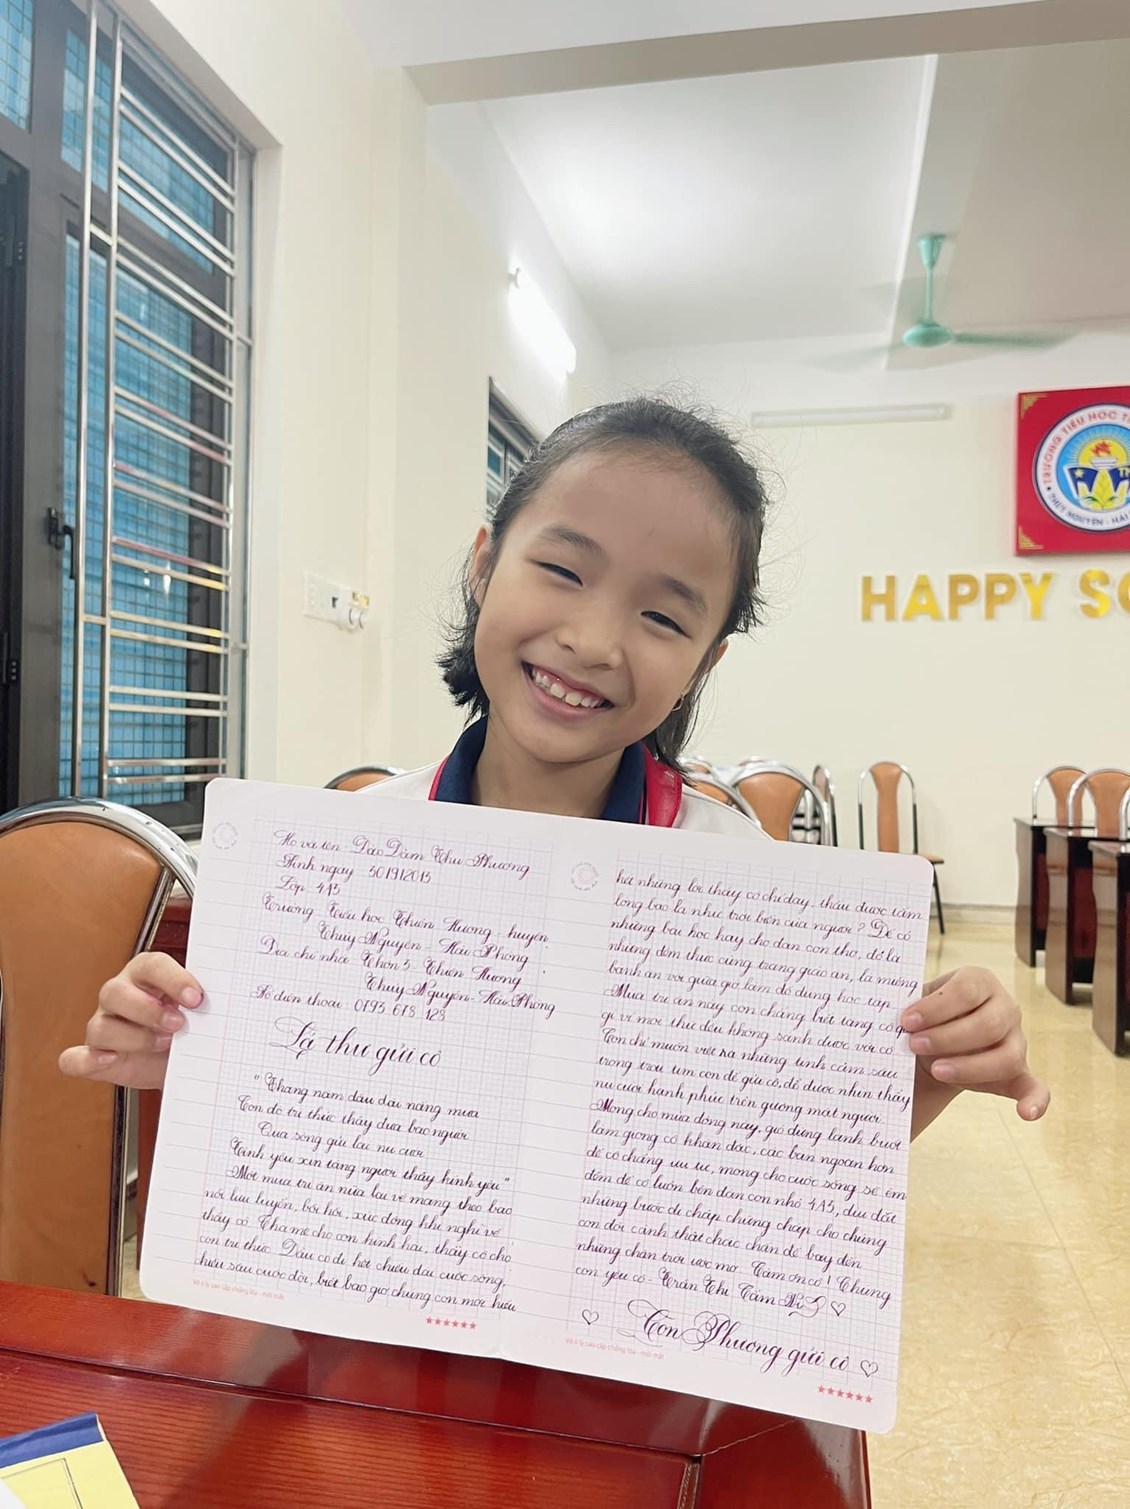 TRƯỜNG TIỂU HỌC
THỦY NGUYÊN - HẢI
HAPPY
Họ và tên Đào Đàm Thu Phương
Sinh ngày 30/9/2013
Lớp 4A5
Trường Tiểu học Thiên Hương - huyện
Thủy Nguyên - Hải Phòng
Địa chỉ nhà: Thôn 5 - Thiên Hương
Thủy Nguyên - Hải Phòng
Số điện thoại 0793 678 128
Lá thư gửi cô
"Tháng năm dầu dãi nắng mưa
Con đò tri thức thầy đưa bao người
Qua sông gửi lại nụ cười
Tình yêu xin tặng người thầy kính yêu"
Một mùa tri ân nữa lại về mang theo bao
nỗi lưu luyến, bồi hồi, xúc động khi nghĩ về
thầy cô. Cha mẹ cho con hình hài, thầy cô cho
con tri thức. Dẫu có đi hết chiều dài cuộc sống,
chiều sâu cuộc đời, biết bao giờ chúng con mới hiểu
hết những lời thầy cô chỉ dạy, thấu được tấm
lòng bao la như trời biển của người? Để có
những bài học hay cho đàn con thơ, đó là
những đêm thức cùng trang giáo án, là những
bàn án vội giữa giờ làm đồ dùng học tập.
Mùa tri ân này con chẳng biết tặng cô
gì vì mọi thứ đều không sánh được với cô.
Con chỉ muốn viết ra những tình cảm sâu
trong trái tim con để gửi cô, để được nhìn thấy
nụ cười hạnh phúc trên gương mặt người.
Mong cho mùa đông này, gió đừng lạnh buốt
làm giọng cô khản đặc, các bạn ngoan hơn
để cô chẳng ưu tư, mong cho cuộc sống sẽ êm
đềm để cô luôn bên đàn con nhỏ 4A5, dìu dắt
những bước đi chập chững chắp cho chúng
con đôi cánh thật chắc chắn để bay đến
những chân trời ước mơ. Cảm ơn cô! Chúng
con yêu cô - Trần Thị Tâm
Con Phương gửi cô
Vở ô ly cao cấp chống lóa - mỏi mắt
Vở ô ly cao cấp chống lóa - mỏi mắt